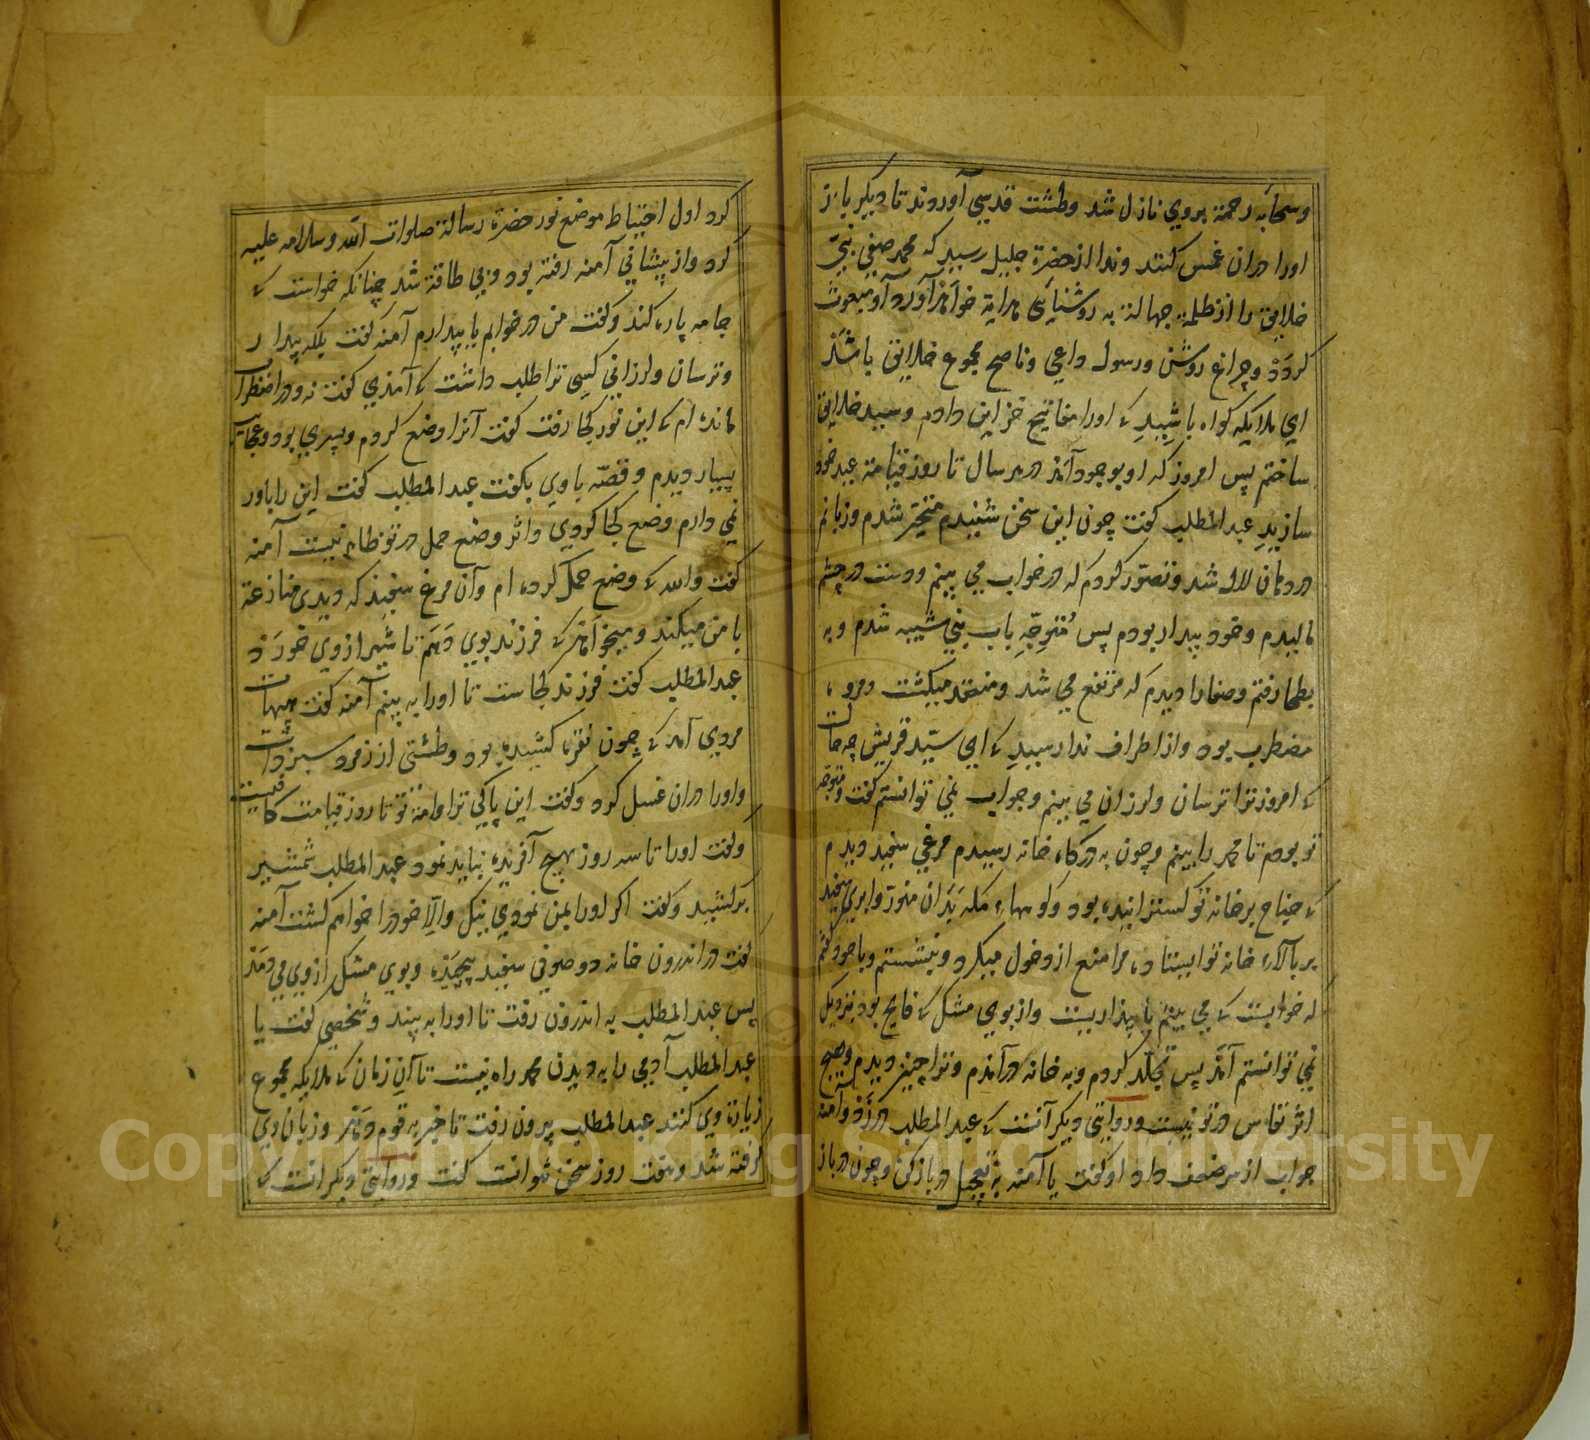 وسحابه رحمة بروي نازل شد وطشت قدسي آوردند تا ديكر باره
اورا دران غسل كنند وندا از حضرة جليل رسيد كه محمد صفي نبيّ
خلايق را از ظلمة جهالة به روشنايى هداية خواهذ آورد او مبعوث
كردد وچراغ روشن ورسول داعي وناصح مجموع خلايق باشذ
اي ملايكه كواه باشيد كه اورا مفاتيح خزاين دادم وسيد خلايق
ساختم پس امروز كه او بوجود آمذ در هر سال تا روز قيامة عيد خود
سازيد عبد المطلب كفت چون اين سخن شنيدم متحيّر شدم وزبانم
در دهان لال شد وتصوّر كردم كه در خواب مي بينم ودست در چشم
ماليدم وخود بيدار بودم پس متوجّه باب بني شيبه شدم وبه
بطحا رفتم وصفا را ديدم كه مرتفع مي شد ومنخفد ميكشت ومروه
مضطرب بود واز اطراف ندا رسيد كه اي سيّد قريش چه حالت
كه امروز ترا ترسان ولرزان مي بينم وجواب نمي توانستم كفت ومتوجه
تو بودم تا محمد را بينم وچون به دركاه خانه رسيدم مرغي سفيد ديدم
كه جناح بر خانه تو كسترانيده بود وكوهها مكه بدان منور وابري سفيد
بر بالاء خانه تو ايستاده مرا منع از دخول ميكرد ونشستم وبا خود كفتم
كه خوابست كه مي بينم يا بيذاريست واز بوي مشك كه فايح بود نزديك
نمي توانستم آمد پس تجلّد كردم وبه خانه درآمذم وترا چنين ديدم وهيچ
اثر نفاس در تو نيست وروايتي ديكر آنست كه عبد المطلب در زد وآمنه
جواب از سر ضعف داد او كفت يا آمنه به تعجيل در باز كن وچون در باز
كرد اول احتياط موضع نور حضرة رسالة صلوات الله وسلامه عليه
كرد واز پيشاني آمنه رفته بود وبي طاقة شد چنانكه خواست كه
جامه پاره كند وكفت من در خوابم يا بيدارم آمنه كفت بلكه بيدار
وترسان ولرزاني كسي ترا طلب داشت كه آمذي كفت نه ودر اضطراب
مانده ام كه اين نور كجا رفت كفت آنرا وضع كردم وپسري بود وعجايب
بسيار ديدم وقصّه با وي بكفت عبد المطلب كفت اين را باور
نمي دارم وضع كجا كردي واثر وضع حمل در تو ظاهر نيست آمنه
كفت والله كه وضع حمل كرده ام وآن مرغ سفيذ كه ديدى منازعة
با من ميكند وميخواهذ كه فرزند بوي دهم تا شير از وي خورد
عبد المطلب كفت فرزند كجاست تا اورا به بينم آمنه كفت هيهات
مردي آمد كه چون نقره كشيده بود وطشتي از زمرد سبز داشت
واورا دران غسل كرد وكفت اين پاكي ترا وامة تو تا روز قيامت كافيست
وكفت اورا تا سه روز بهيچ آفريده نبايد نمود عبد المطلب شمشير
بركشيد وكفت اكر اورا بمن نمودي نيك والّا خودرا خواهم كشت آمنه
كفت در اندرون خانه در صوفي سفيد پيچيذه وبوي مشك از وي مي دمذ
پس عبد المطلب به اندرون رفت تا اورا به بيند وشخصي كفت يا
عبد المطلب آدمي را به ديدن محمد راه نيست تا آن زمان كه ملايكه مجموع
زيارة وي كنند عبد المطلب بيرون رفت تا خبر به قوم دهذ وزبان وي
كرفته شد وهفت روز سخن نتوانست كفت وروايتي ديكر انست كه